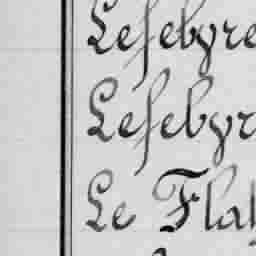 Lefebvre
Lefebvr
Le Fla